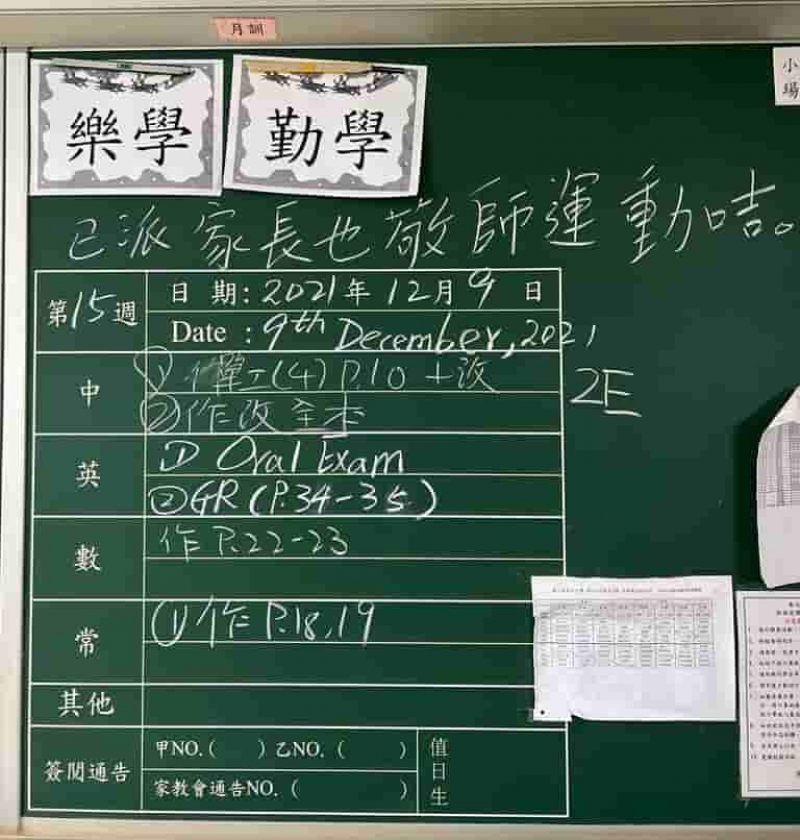 月訓
樂學
勤學
小
場
已派家長也敬師運動咭。
第15週
日期:2021年12月9日
Date : 9th December, 2021
中
① 作單二(4) P.10 + 改
②作改全本
2E
英
① Oral Exam
②GR (P.34-35)
數
作 P.22-23
常
① 作 P.18,19
其他
簽閱通告
甲NO.( ) 乙NO. ( )
家教會通告NO. ( )
值日生